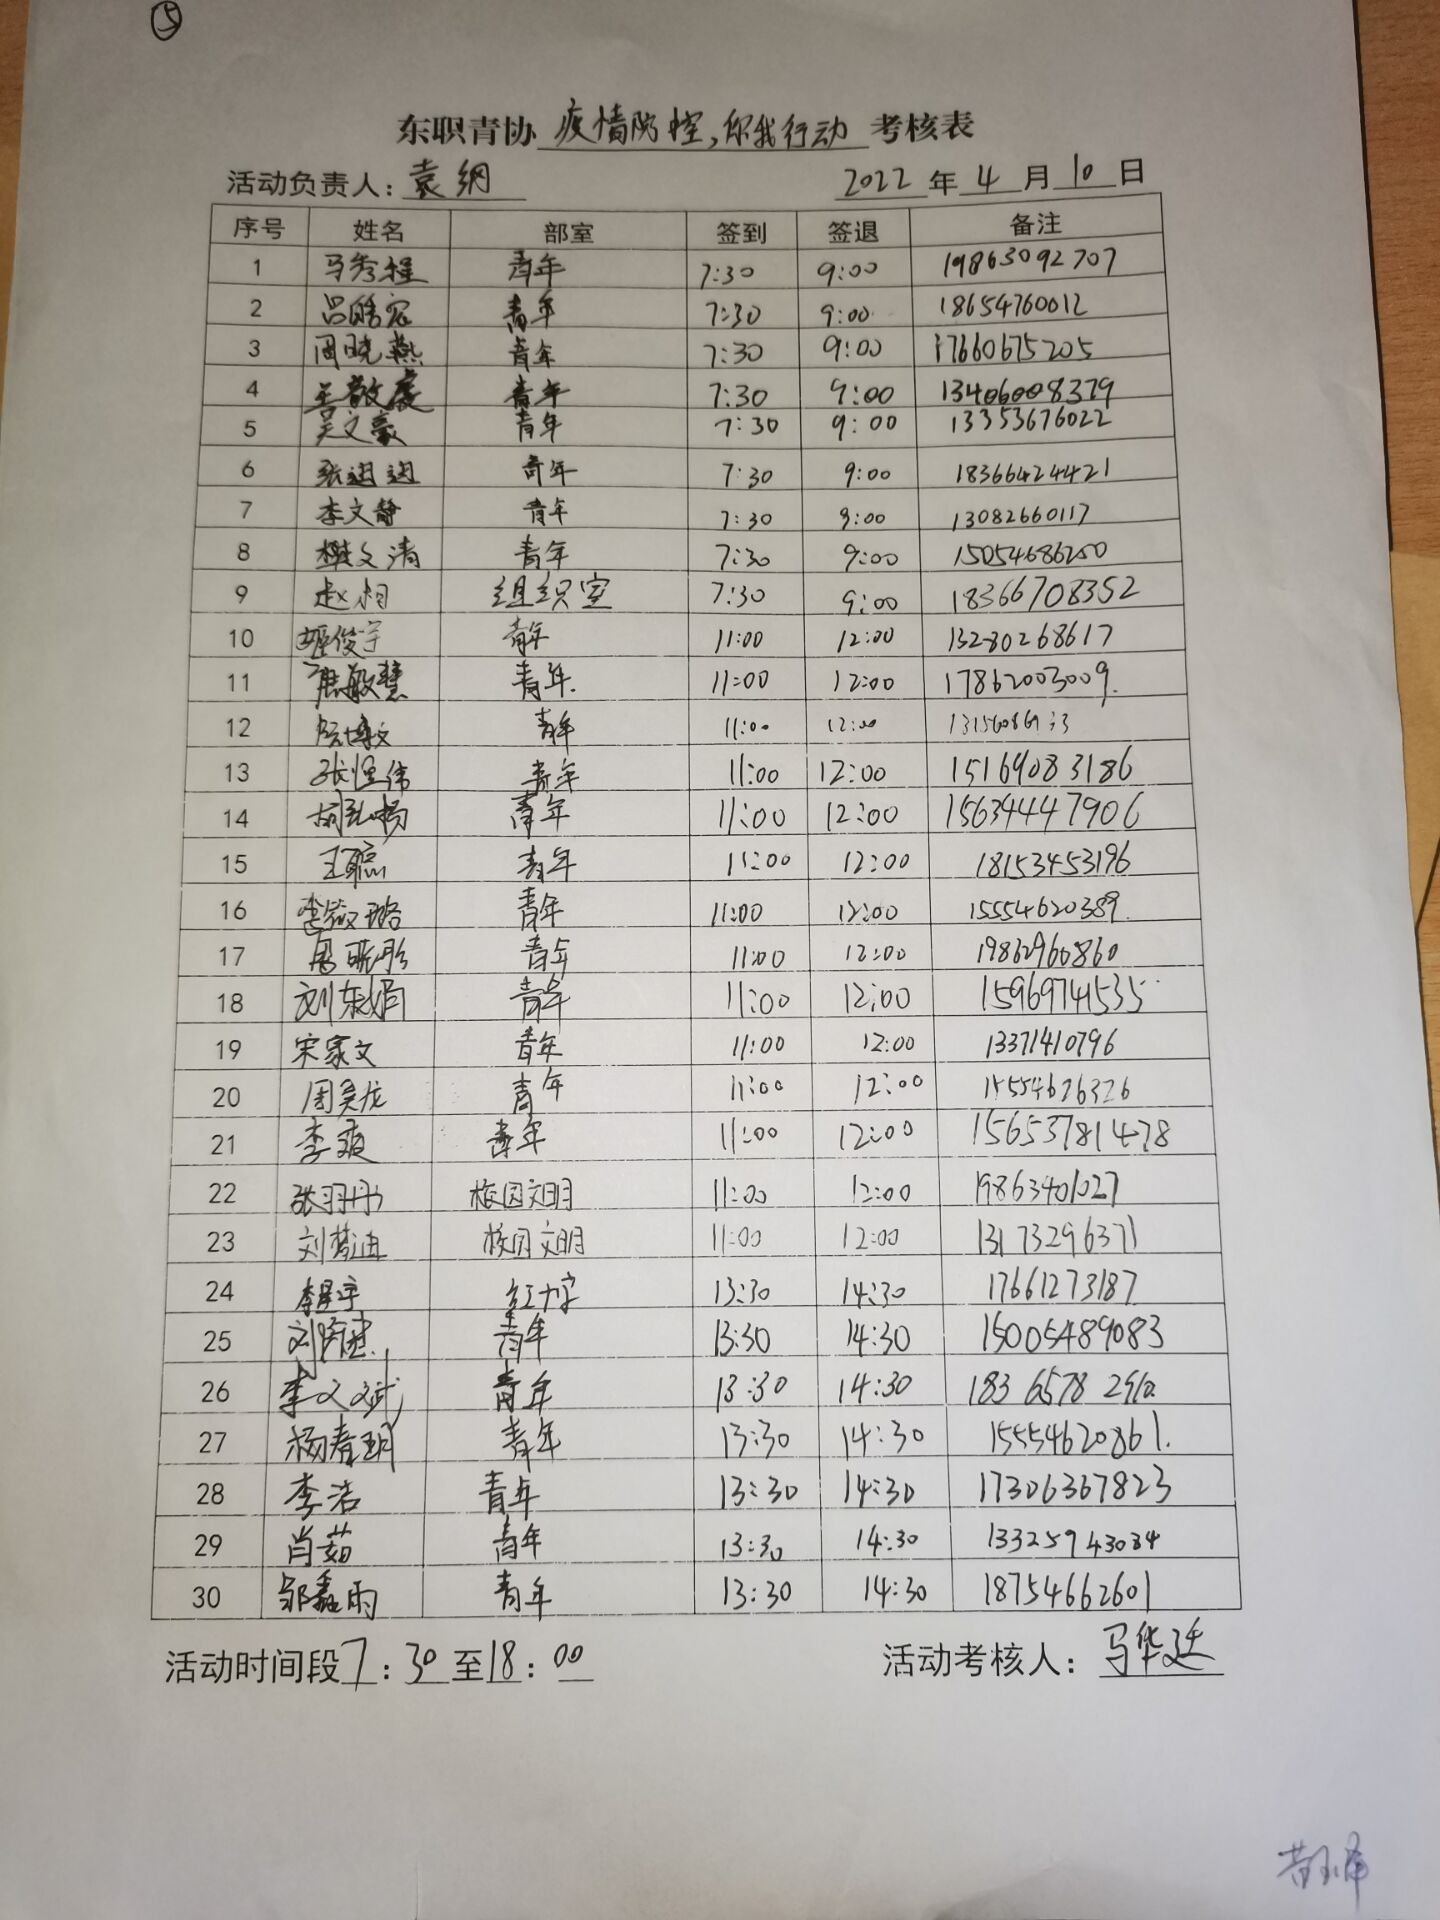 ⑤
东职青协 疫情防控,你我行动 考核表
活动负责人: 袁纲 2022 年 4 月 10 日
序号 姓名 部室 签到 签退 备注
1 马秀程 青年 7:30 9:00 19863092707
2 吕皓宛 青年 7:30 9:00 18654760012
3 周晓燕 青年 7:30 9:00 17660675205
4 王敬虔 青年 7:30 9:00 13406008379
5 吴文豪 青年 7:30 9:00 13353676022
6 张迪迪 青年 7:30 9:00 18366424421
7 李文静 青年 7:30 9:00 13082660117
8 樊文清 青年 7:30 9:00 15054686200
9 赵相 组织室 7:30 9:00 18366708352
10 姬俊宇 青年 11:00 12:00 13280268617
11 唐敏慧 青年. 11:00 12:00 17862003009.
12 青年 11:00 12:00
13 张恒伟 青年 11:00 12:00 15169083186
14 青年 11:00 12:00 15634447906
15 王聪 青年 11:00 12:00 18153453196
16 李敬璐 青年 11:00 12:00 15554620389.
17 周晓彤 青年 11:00 12:00 19862960860
18 刘东娟 青年 11:00 12:00 15969741535
19 宋家文 青年 11:00 12:00 13371410796
20 周奕龙 青年 11:00 12:00 15554626326
21 李爽 青年 11:00 12:00 15653781478
22 张羽彤 校园文明 11:00 12:00 19863401027
23 刘梦迪 校园文明 11:00 12:00 13173296371
24 李昱宇 红十字 13:30 14:30 17661273187
25 青年 13:30 14:30 15005489083
26 李文斌 青年 13:30 14:30
27 杨春玥 青年 13:30 14:30 15554620861.
28 李浩 青年 13:30 14:30 17306367823
29 肖茹 青年 13:30 14:30 13325943084
30 邹鑫雨 青年 13:30 14:30 18754662601
活动时间段 7:30 至 18:00 活动考核人: 马华廷